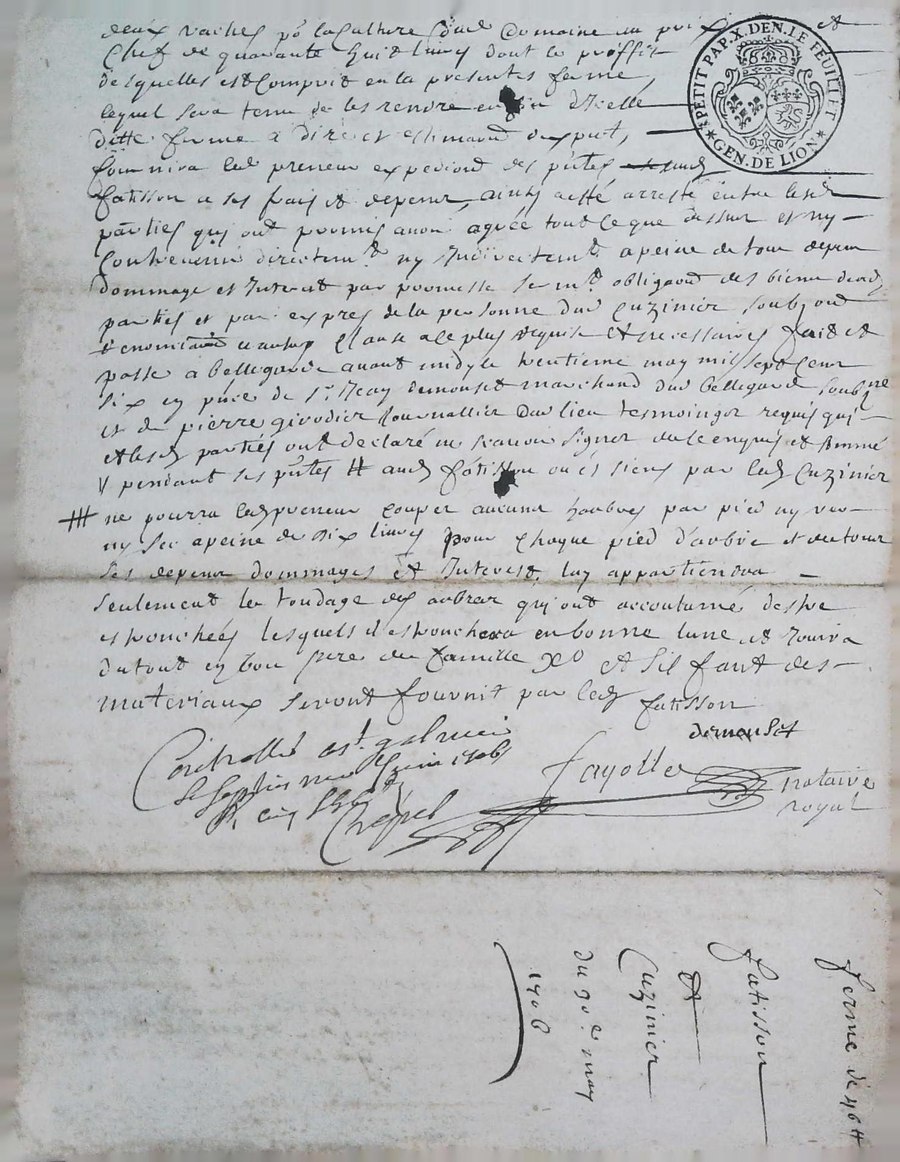 deux vaches po la Culture dud Domaine au prix et
Chef de quarante huit livres dont le proffit
desquelles est Compris en la presentes ferme
lequel sera tenu de les rendre en fin d'Icelle
ditte ferme a dire et estimaon dexpert,
fournira led preneur expediond des pntes aud
fatisson a ses frais et depens, ainsy a esté arresté entre lesd
parties quy ont promis avoir agrée tout Ce que dessus et ny
Contrevenir directemt ny Indirectemt a peine de tous depens
dommage et Interest par promesse sermt obligaond des biens desd
parties et par expres de la personne dud Cuzinier Soubz
renontiaond et autres Clauses a Ce plus requise et necessaires fait et
passé a bellegarde avant midy le trentieme may mil sept Cens
six en pnce de Sr demouset marchand dud bellegarde soubzne
et de pierre givodier Journallier dud lieu tesmoingts requis quy
et lesd parties ont declaré ne scavoir signer de Ce enquis et Sommé
pendant ses pntes # aud fatisson ou es siens par led Cuzinier
# ne pourra led preneur Couper aucuns harbres par pied ny vert
ny sec a peine de dix livres pour chaque pied d'arbre et de tous
ses depens dommages et Interest, luy appartiendra
seulement le tondage des arbres quy ont accoutumé destre
esbranchées lesquels Il esbranchera en bonne lune et Jouira
du tout en bon pere de famille Xo et Sil faut des
materiaux seront fournit par led fatisson
demouset
Controllé a St galmier
le septieme Juin 1706
R cinq
Chapel
fayolle
notaire
royal
PETIT PAP. X. DEN. LE FEUILLET
GEN. DE LION
ferme de 46 #
fatisson
&
Cuzinier
du 30e may
1706